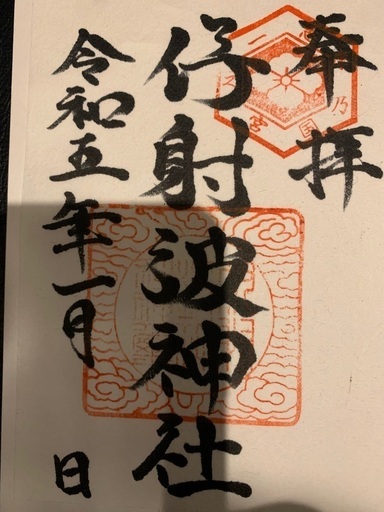 奉拝
伊射波神社
令和五年一月 日